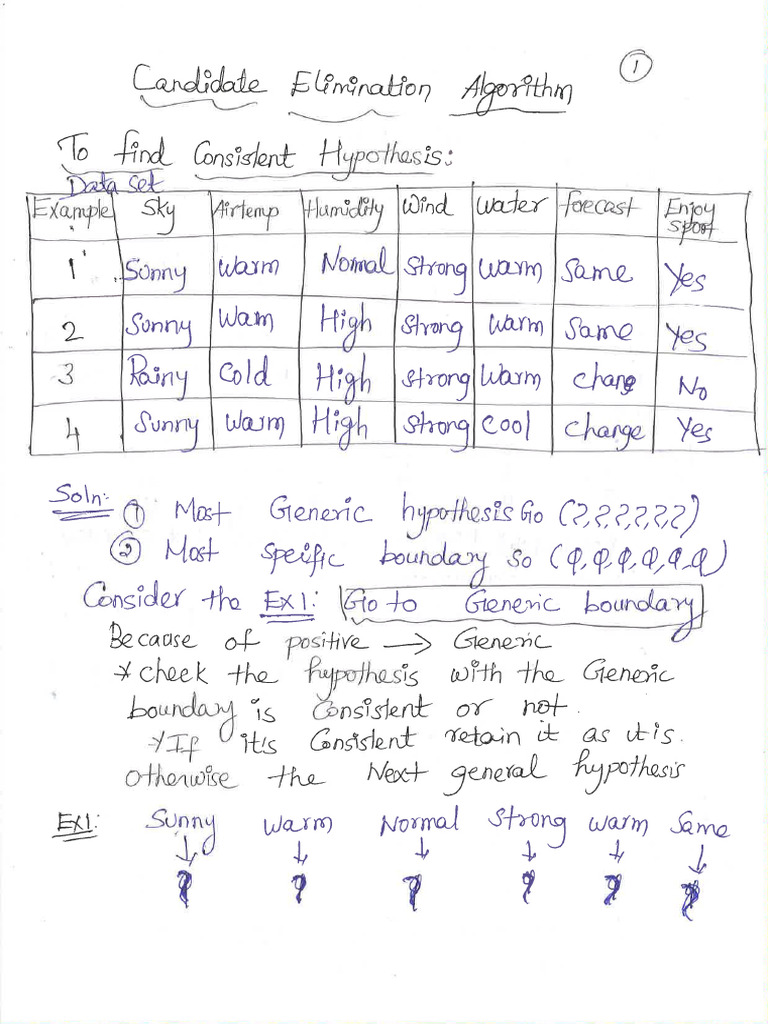 1
Candidate Elimination Algorithm
To find Consistent Hypothesis:
Data set
Example Sky Airtemp Humidity Wind Water forecast Enjoy sport
1 Sunny Warm Normal Strong Warm Same Yes
2 Sunny Wam High Strong Warm Same Yes
3 Rainy Cold High Strong Warm Chang No
4 Sunny Warm High Strong Cool Change Yes
Soln: 1 Most Generic hypothesis Go (?,?,?,?,?,?)
2 Most Specific boundary So (φ,φ,φ,φ,φ,φ)
Consider the EX1: Go to Generic boundary
Because of positive → Generic
* check the hypothesis with the Generic
boundary is Consistent or not.
* If it's Consistent retain it as it is.
otherwise the Next general hypothesis
EX1: Sunny Warm Normal Strong Warm Same
↓ ↓ ↓ ↓ ↓ ↓
? ? ? ? ? ?